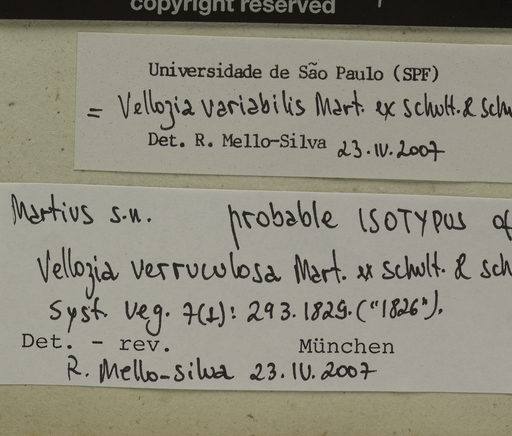 copyright reserved
Universidade de São Paulo (SPF)
= Vellozia variabilis Mart. ex Schult. & Sch
Det. R. Mello-Silva 23.IV.2007
Martius s.n. probable ISOTYPUS of
Vellozia verruculosa Mart. ex Schult. & Sch
Syst. Veg. 7(1): 293.1829. ("1826").
Det. - rev. München
R. Mello-Silva 23.IV.2007